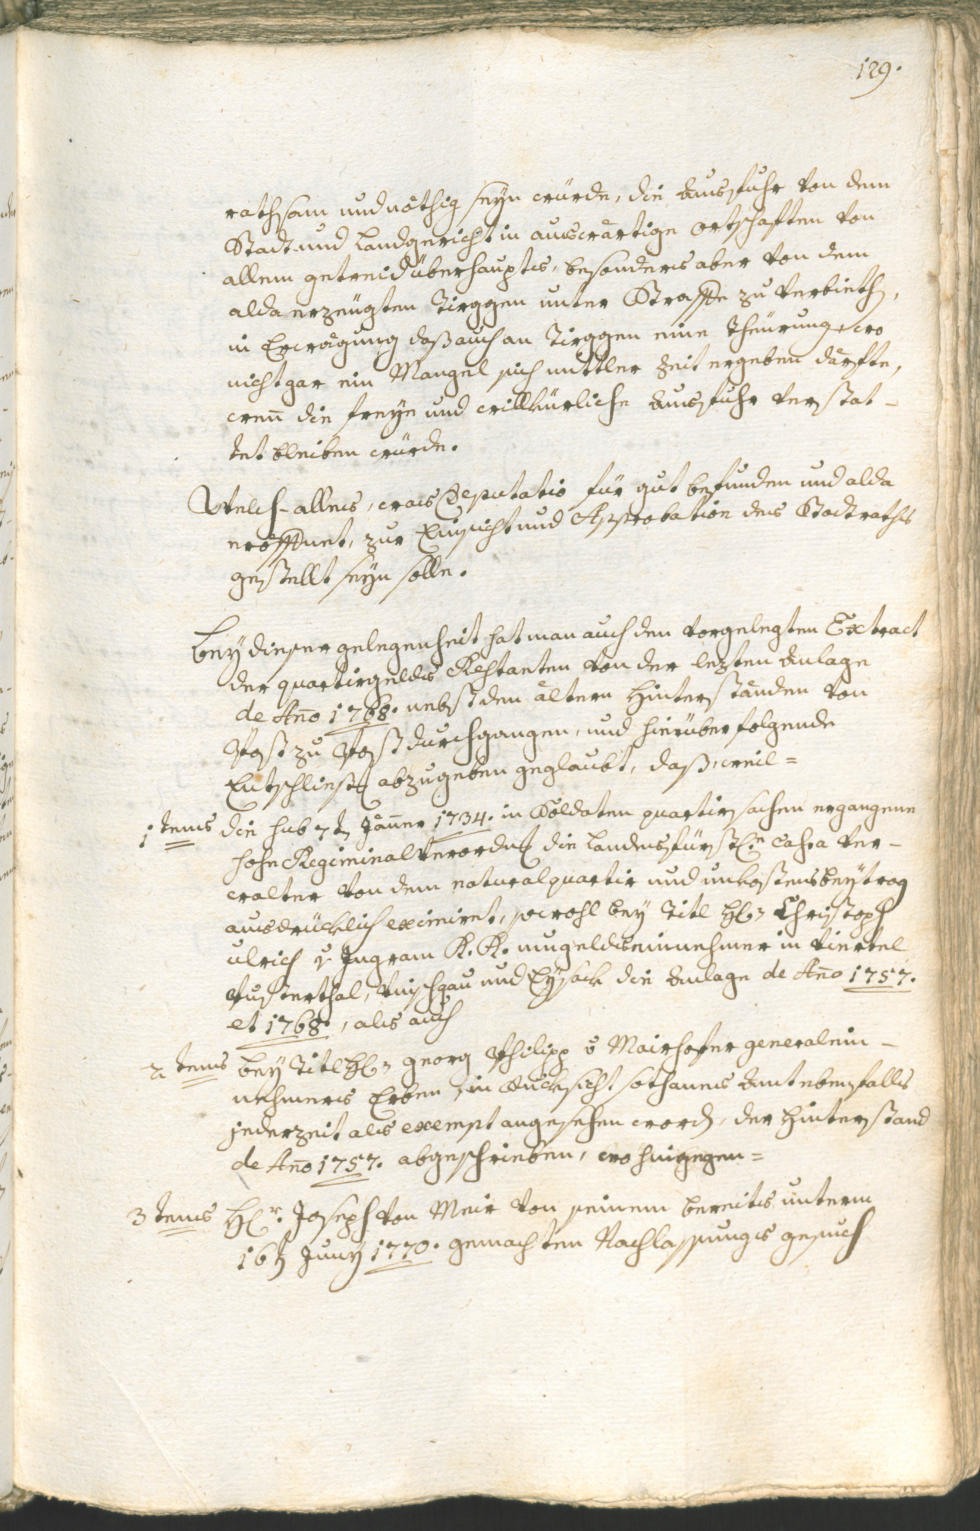 129.
rathsam und nöthig seÿn würde, die Ausfuhr von dem
Stadt und Landgericht in auswärtige ortschaften von
allem getreid überhaupts, besonders aber von dem
alda erzeügten Tirggen unter Straffe zu verbieth,
in Erwägung daß auch an Tirggen eine theürung, wo
nicht gar ein Mangel sich mittler Zeit ergeben därfte,
wenn die freÿe und willkürliche Ausfuhr verstat-
tet bleiben würde.
Welch-alles, was Deputatio für gut befunden und alda
eröffnet, zur Einsicht und Approbation des Stadtraths
gestellt seÿn solle.
Beÿ dieser gelegenheit hat man auch den vorgelegten Extract
der quartirgelds Restanten von der lezten Anlage
de Año 1768. nebst den ältern Hinterständen von
Post zu Post durchgangen, und hierüber folgende
Entschliess abzugeben geglaubt, daß, weil=
1tens die sub 7t Jäner 1734. in Soldaten quartirsachen ergangene
hohe Regiminal Verordn die Landesfürstl. Cassa ver-
walter von dem natural quartir und unkostensbeÿtrag
ausdrücklich eximiret, sowohl beÿ Titl H. Christoph
Ulrich v Ingram K. K. umgeldseinnehmer in Viertel
Pusterthal, Vinschgau und Eÿsack die Anlage de Año 1757.
et 1768., als auch
2tens beÿ Titl H. Georg Philipp v Mairhofer generalein-
nehmers Erben, in Rücksicht sothanes Amt ebenfalls
jederzeit als exempt angesehen word, der Hinterstand
de Año 1757. abgeschrieben, wo hingegen=
3tens H.r Joseph von Meir von seinem bereits unterm
16t Junÿ 1770. gemachten Nachlassungs gesuch